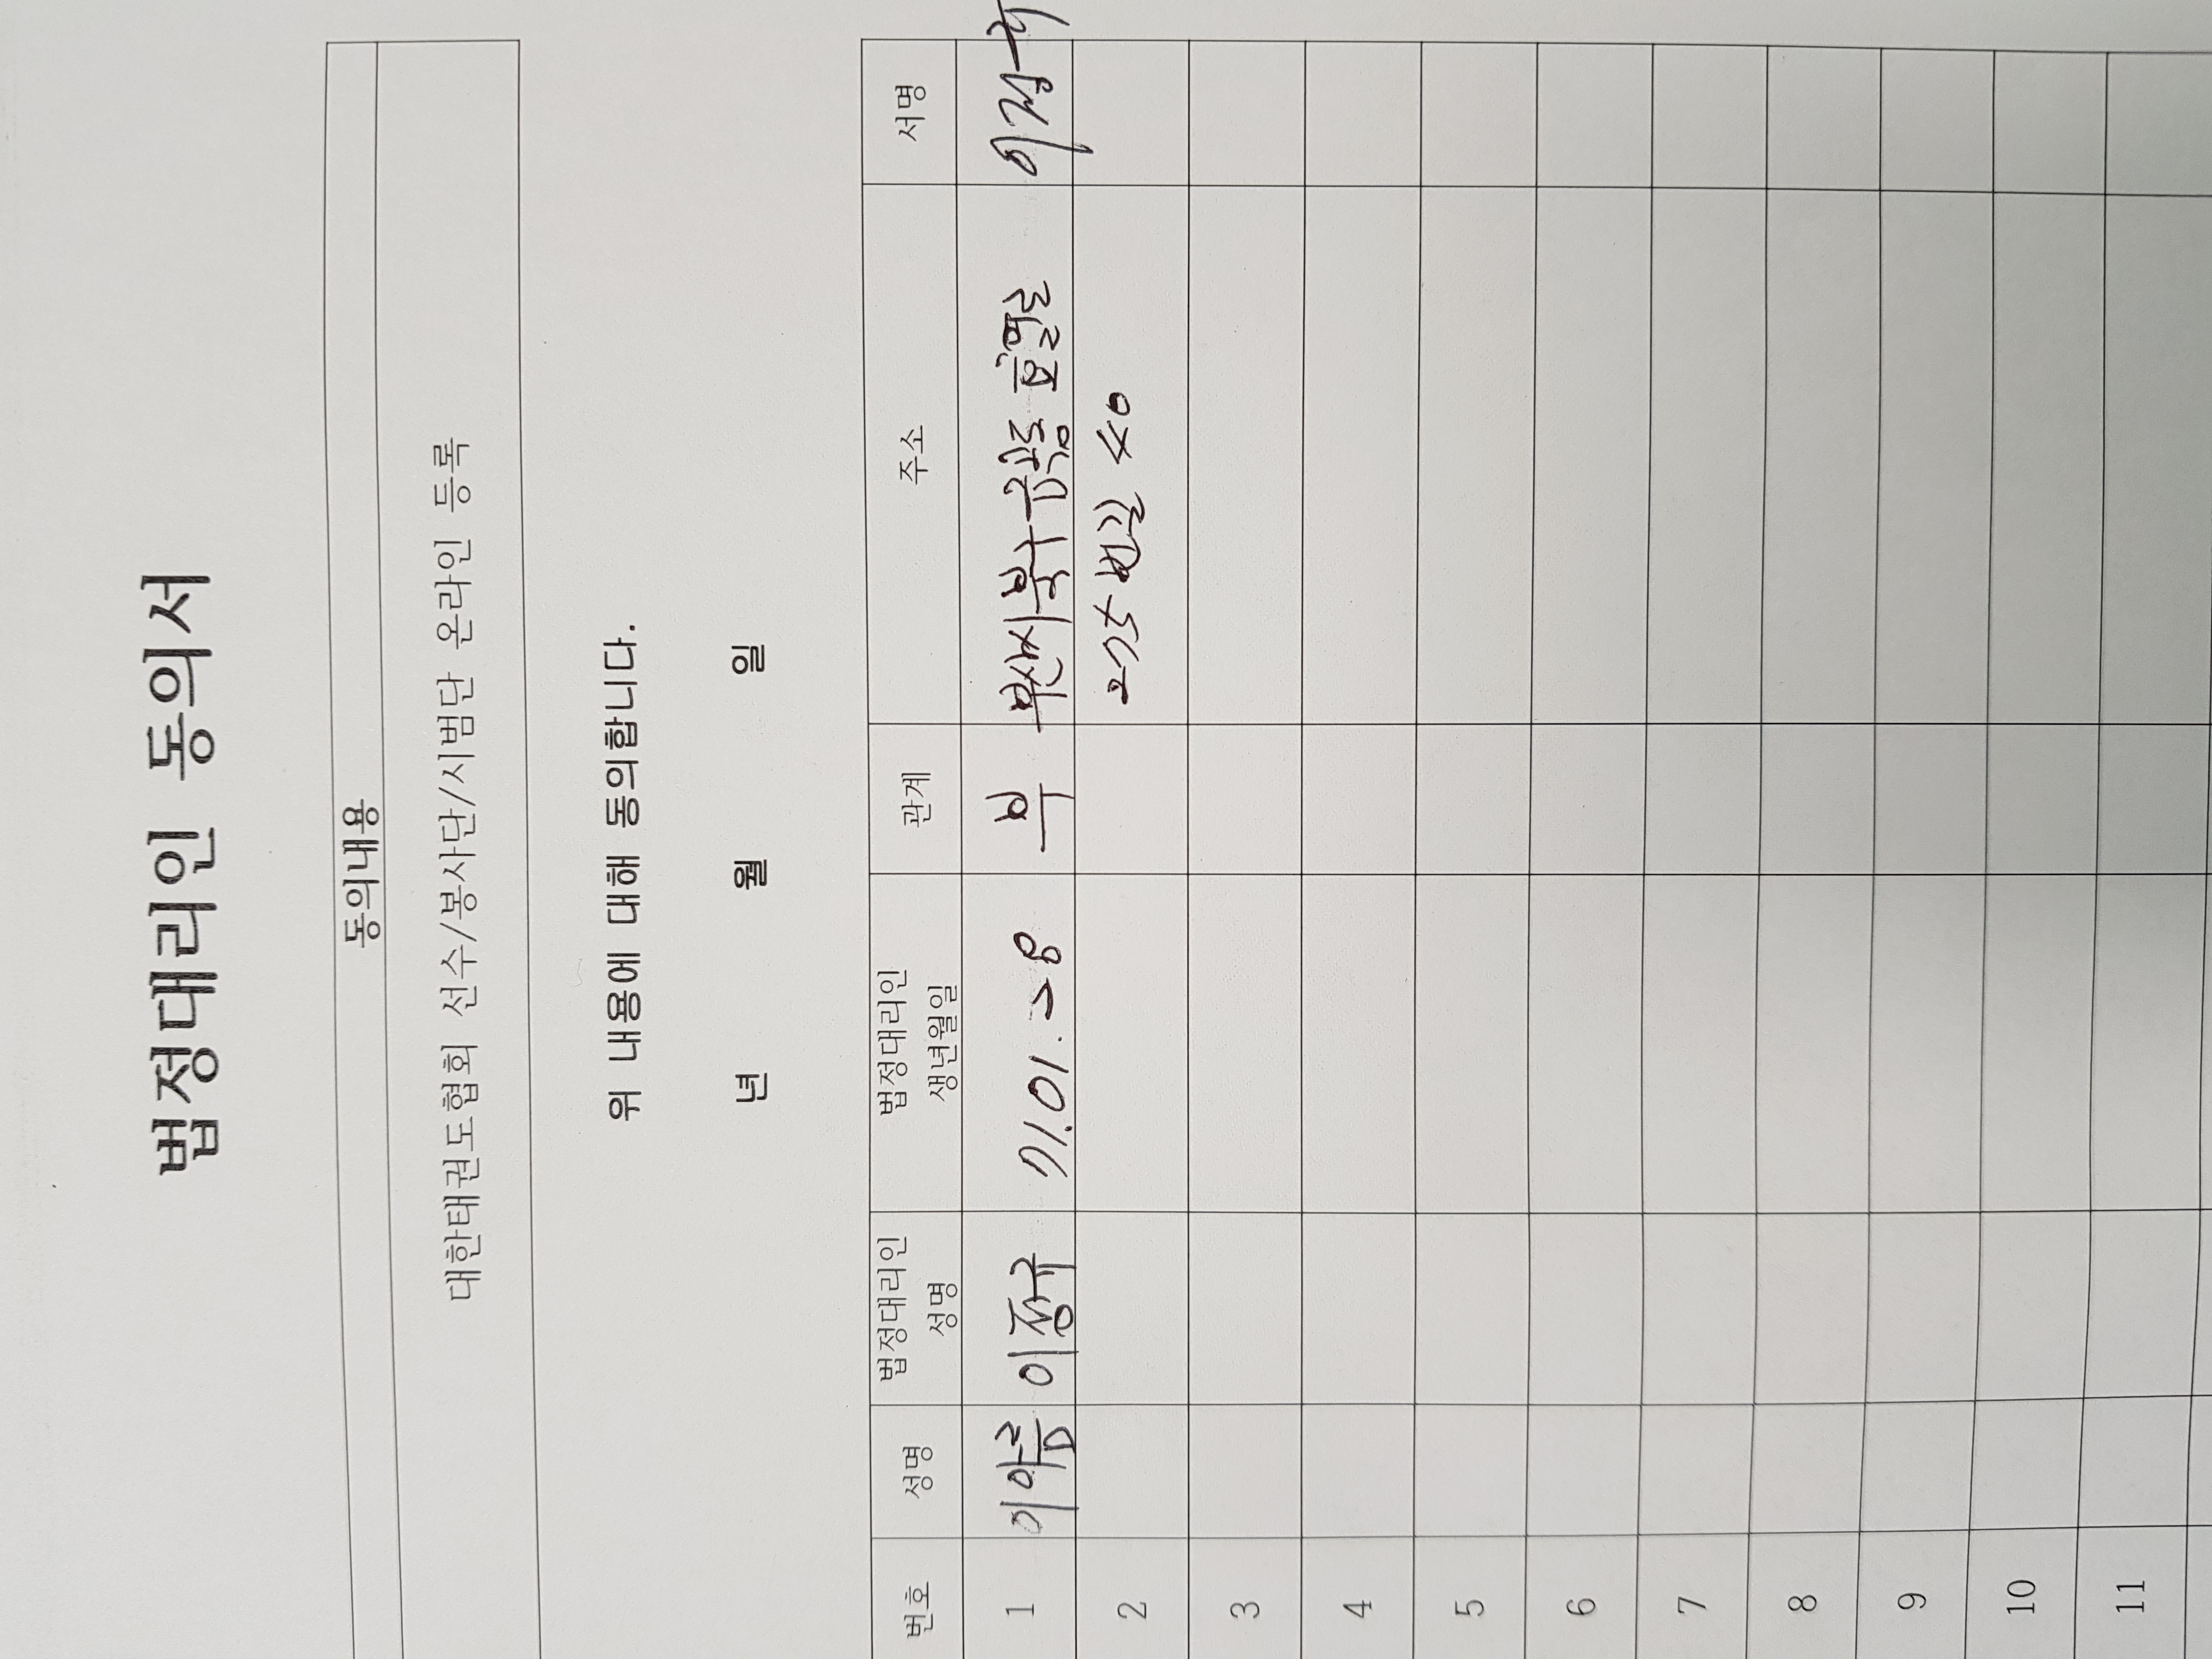 법정대리인 동의서
동의내용
대한태권도협회 선수/봉사단/시범단 온라인 등록
위 내용에 대해 동의합니다.
년 월 일
번호 성명 법정대리인 성명 법정대리인 생년월일 관계 주소 서명
1 이아름 이정규 71.01.28 부 부산시북구금곡동 효열로
2 275번길 40
3
4
5
6
7
8
9
10
11